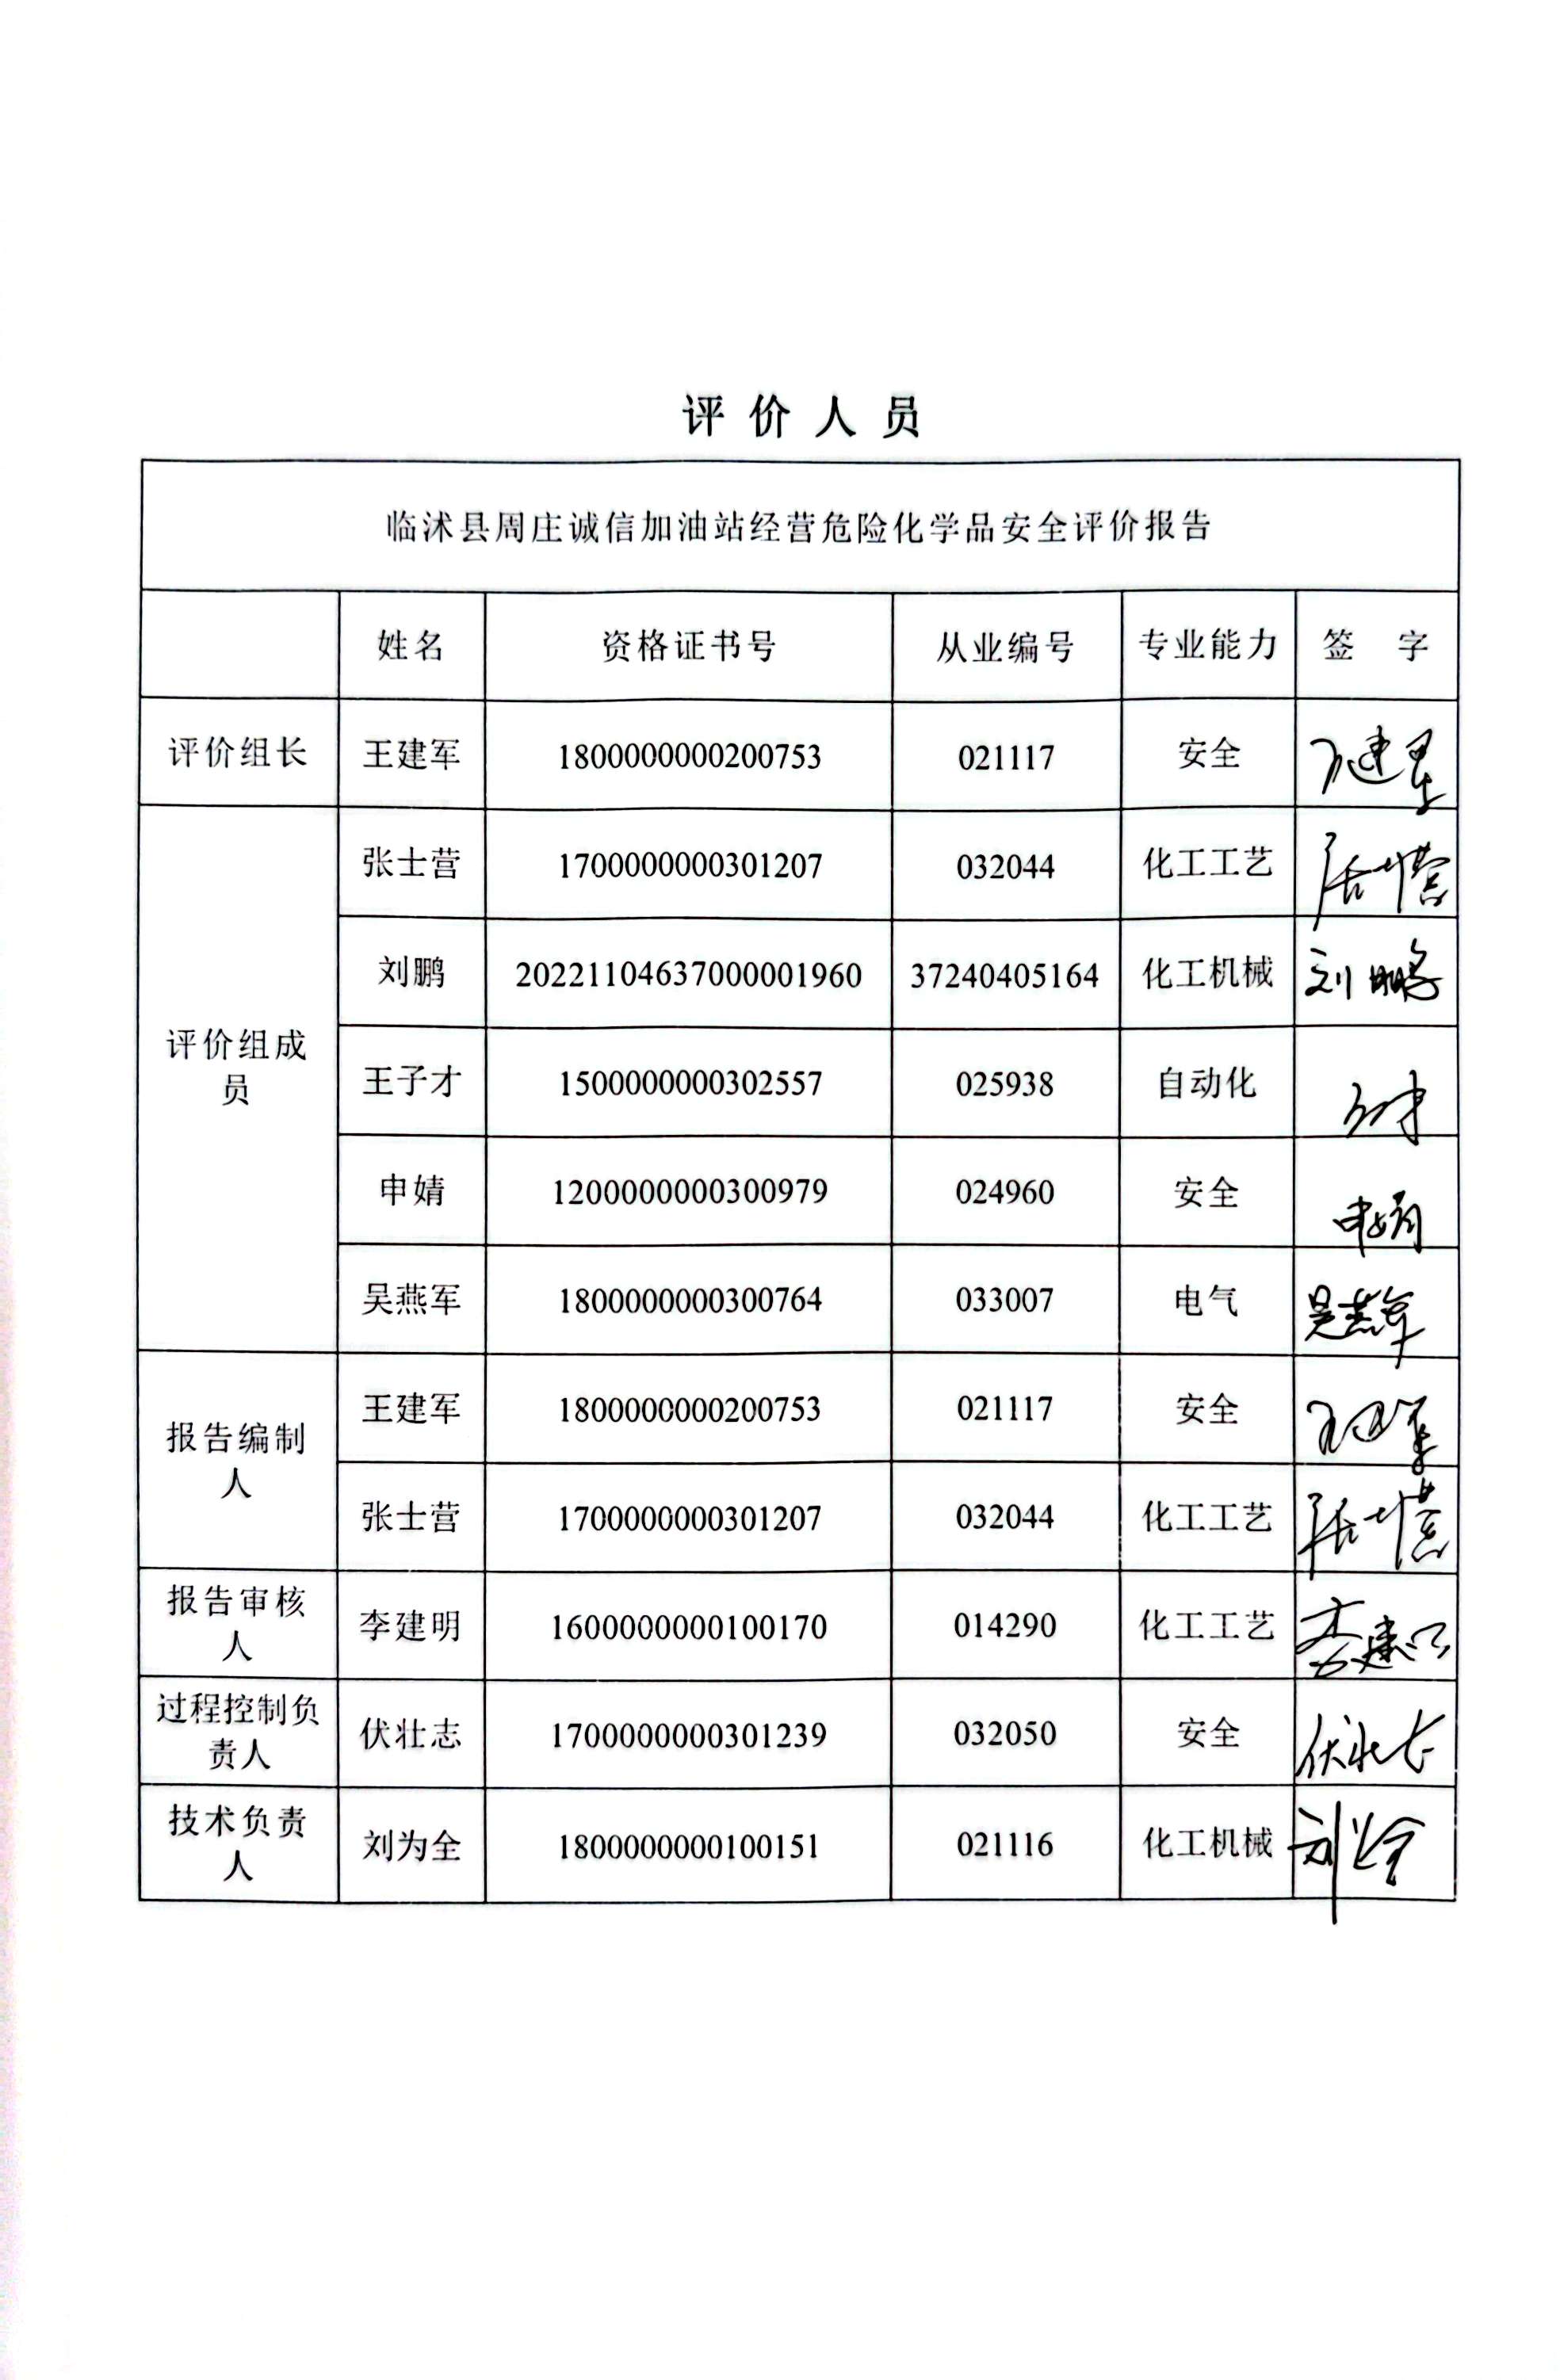 评价人员
临沭县周庄诚信加油站经营危险化学品安全评价报告
姓名 资格证书号 从业编号 专业能力 签 字
评价组长 王建军 1800000000200753 021117 安全 王建军
评价组成员 张士营 1700000000301207 032044 化工工艺 张士营
刘鹏 20221104637000001960 37240405164 化工机械 刘鹏
王子才 1500000000302557 025938 自动化 王子才
申婧 1200000000300979 024960 安全 申婧
吴燕军 1800000000300764 033007 电气 吴燕军
报告编制人 王建军 1800000000200753 021117 安全 王建军
张士营 1700000000301207 032044 化工工艺 张士营
报告审核人 李建明 1600000000100170 014290 化工工艺 李建明
过程控制负责人 伏壮志 1700000000301239 032050 安全 伏壮志
技术负责人 刘为全 1800000000100151 021116 化工机械 刘为全